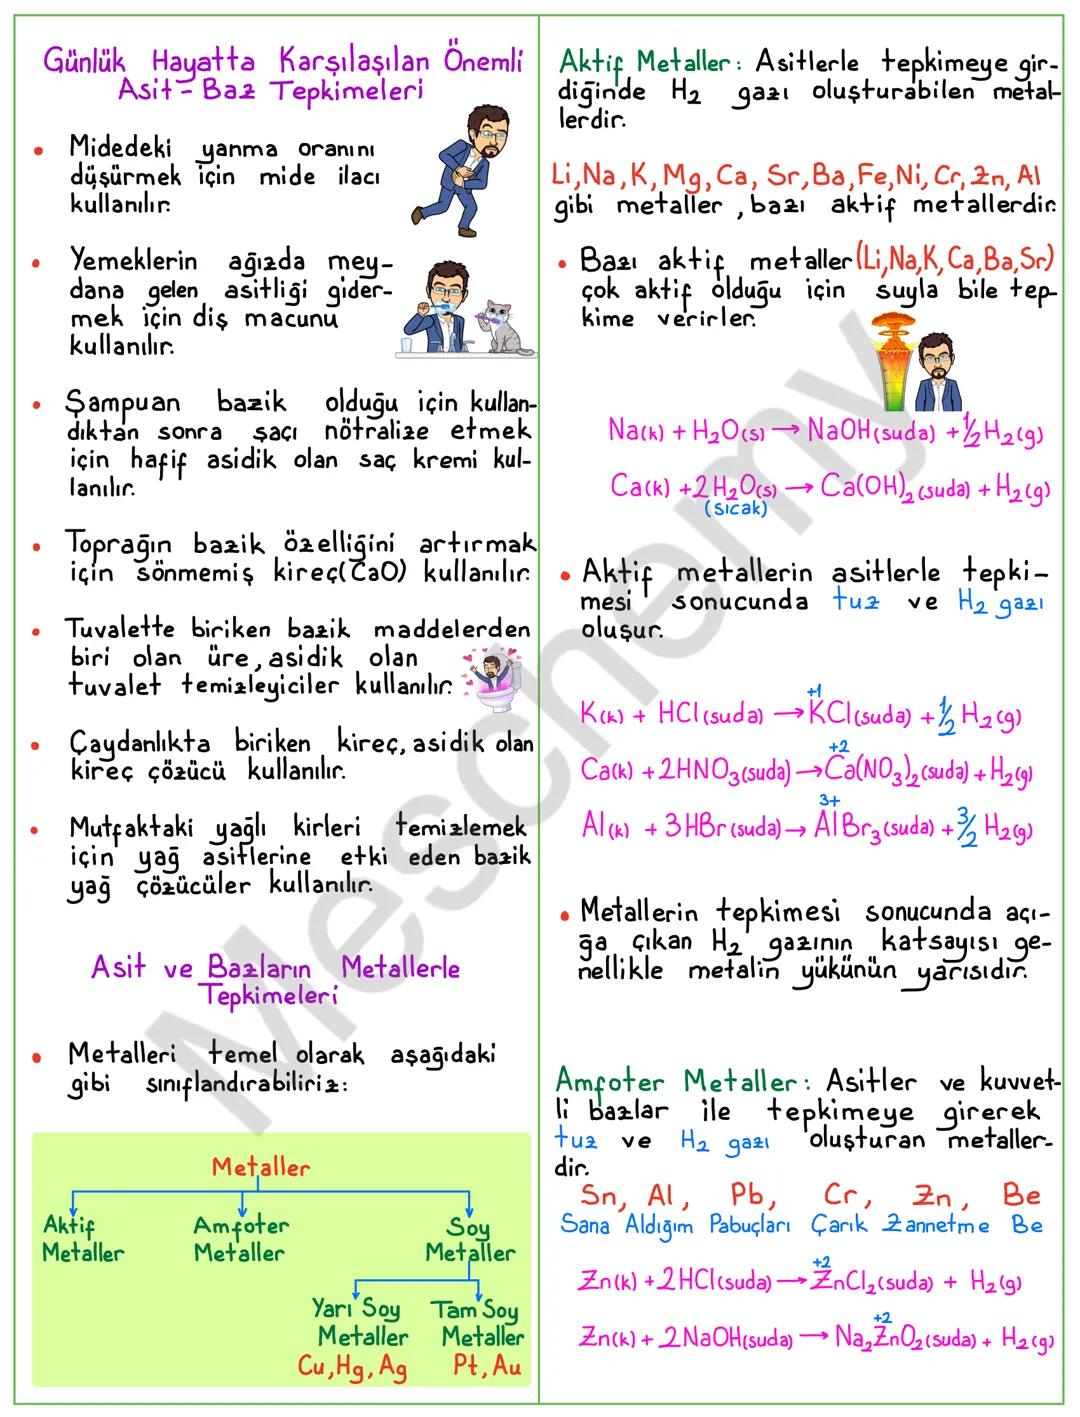 Günlük Hayatta Karşılaşılan Önemli
Asit - Baz Tepkimeleri
• Midedeki yanma oranını
düşürmek için mide ilacı
kullanılır.
• Yemeklerin ağızda mey-
dana gelen asitliği gider-
mek için diş macunu
kullanılır.
• Şampuan bazik olduğu için kullan-
dıktan sonra saçı nötralize etmek
için hafif asidik olan saç kremi kul-
lanılır.
• Toprağın bazik özelliğini artırmak
için sönmemiş kireç(CaO) kullanılır.
• Tuvalette biriken bazik maddelerden
biri olan üre, asidik olan
tuvalet temizleyiciler kullanılır.
• Çaydanlıkta biriken kireç, asidik olan
kireç çözücü kullanılır.
• Mutfaktaki yağlı kirleri temizlemek
için yağ asitlerine etki eden bazik
yağ çözücüler kullanılır.
Asit ve Bazların Metallerle
Tepkimeleri
• Metalleri temel olarak aşağıdaki
gibi sınıflandırabiliriz:
Metaller
Aktif Amfoter Soy
Metaller Metaller Metaller
Yarı Soy Tam Soy
Metaller Metaller
Cu, Hg, Ag Pt, Au
Aktif Metaller: Asitlerle tepkimeye gir-
diğinde H₂ gazı oluşturabilen metal-
lerdir.
Li, Na, K, Mg, Ca, Sr, Ba, Fe, Ni, Cr, Zn, Al
gibi metaller, bazı aktif metallerdir.
• Bazı aktif metaller (Li, Na, K, Ca, Ba, Sr)
çok aktif olduğu için suyla bile tep-
kime verirler.
Na(k) + H₂O(s) → NaOH(suda) + 1/2 H₂(g)
Ca(k) + 2H₂O(s) → Ca(OH)₂(suda) + H₂(g)
(sıcak)
• Aktif metallerin asitlerle tepki-
mesi sonucunda tuz ve H₂ gazı
oluşur.
+1
K(k) + HCl(suda) → KCl(suda) + 1/2 H₂(g)
+2
Ca(k) + 2HNO₃(suda) → Ca(NO₃)₂(suda) + H₂(g)
3+
Al(k) + 3HBr(suda) → AlBr₃(suda) + 3/2 H₂(g)
• Metallerin tepkimesi sonucunda açı-
ğa çıkan H₂ gazının katsayısı ge-
nellikle metalin yükünün yarısıdır.
Amfoter Metaller: Asitler ve kuvvet-
li bazlar ile tepkimeye girerek
tuz ve H₂ gazı oluşturan metaller-
dir.
Sn, Al, Pb, Cr, Zn, Be
Sana Aldığım Pabuçları Çarık Zannetme Be
+2
Zn(k) + 2HCl(suda) → ZnCl₂(suda) + H₂(g)
+2
Zn(k) + 2NaOH(suda) → Na₂ZnO₂(suda) + H₂(g)
Meschemy